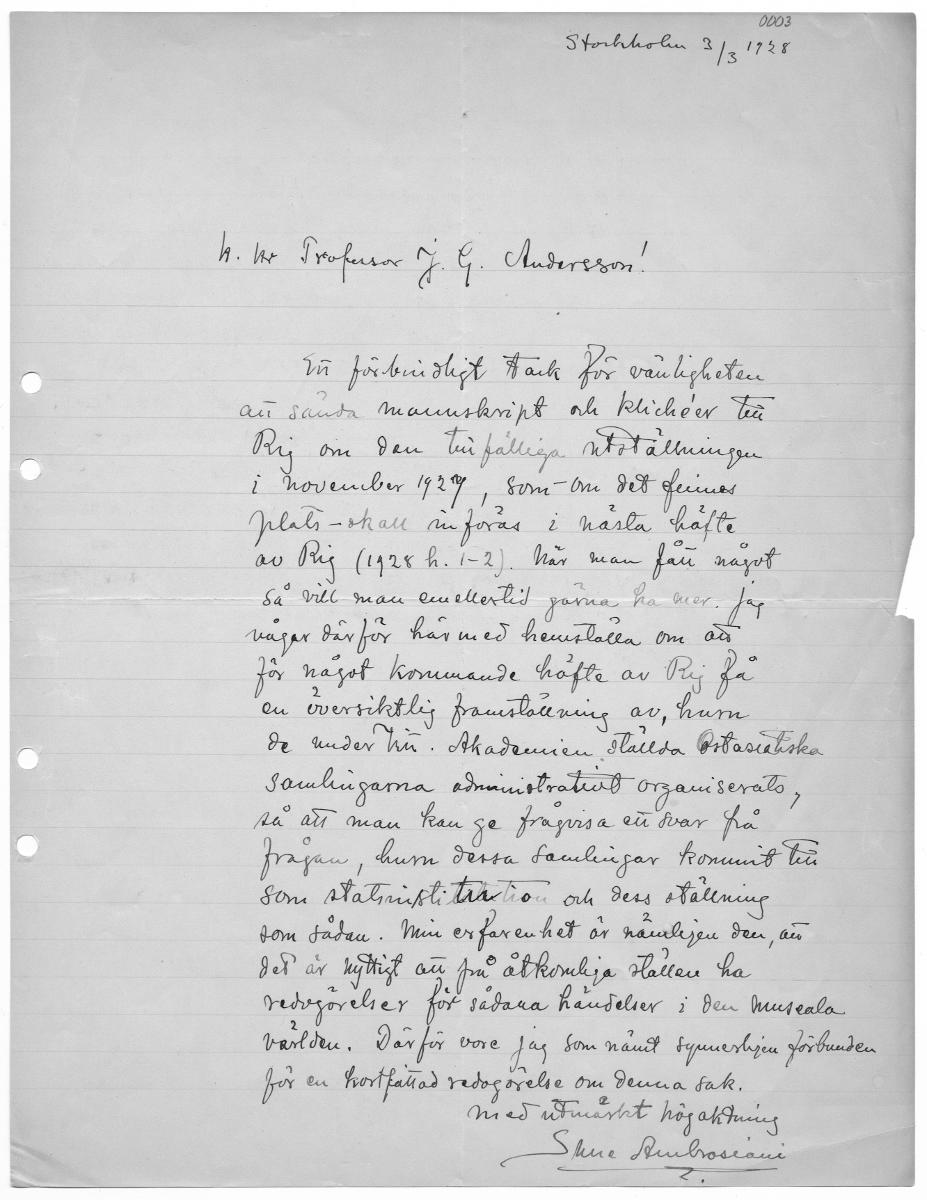 0003
Stockholm 3/3 1928
H. Hr Professor J. G. Andersson!
Ett förbindligt tack för vänligheten
att sända manuskript och klichéer till
Rig om den tillfälliga utställningen
i november 1927, som – om det finnes
plats – skall införas i nästa häfte
av Rig (1928 h. 1-2). När man fått något
så vill man emellertid gärna ha mer. Jag
vågar därför härmed hemställa om att
för något kommande häfte av Rig få
en översiktlig framställning av, huru
de under Vitt. Akademien ställda Ostasiatiska
samlingarna administrativt organiserats,
så att man kan ge frågvisa ett svar på
frågan, huru dessa samlingar kommit till
som statsinstitution och dess ställning
som sådan. Min erfarenhet är nämligen den, att
det är nyttigt att på åtkomliga ställen ha
redogörelser för sådana händelser i den museala
världen. Därför vore jag som nämt synnerligen förbunden
för en kortfattad redogörelse om denna sak.
Med utmärkt högaktning
Sune Ambrosiani